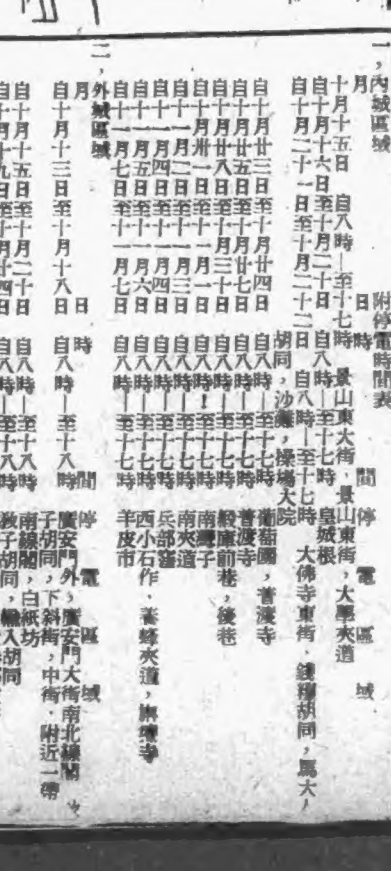 附停電時間表
一，內城區域
月　日　時　間　停　電　區　域
十月十五日　自八時—至十七時　景山東大街，景山東街，大學夾道
自十月十六日至十月二十日　自八時—至十七時　皇城根
自十月二十一日至十月二十二日　自八時—至十七時　大佛寺東街，錢糧胡同，馬大人
胡同，沙灘，操場大院
自十月廿三日至十月廿四日　自八時—至十七時　葡萄園，普渡寺
自十月廿五日至十月廿七日　自八時—至十七時　普渡寺
自十月廿八日至十月三十日　自八時—至十七時　緞庫前巷，後巷
自十月卅一日至十一月一日　自八時！至十七時　南灣子
自十一月二日至十一月三日　自八時—至十七時　南夾道
自十一月四日至十一月四日　自八時—至十七時　兵部窪
自十一月五日至十一月六日　自八時—至十七時　西小石作，養蜂夾道，
自十一月七日至十一月七日　自八時—至十七時　羊皮市
二，外城區域
月　日　時　間　停　電　區　域
自十月十三日至十月十八日　自八時—至十八時　廣安門外，廣安門大街南北線閣，
子胡同，下斜街，中街，附近一帶
自十月十五日至十月二十日　自八時—至十八時　南線閣，白紙坊
自十月十九日至十月廿四日　自八時—至十八時　子胡同，胡同